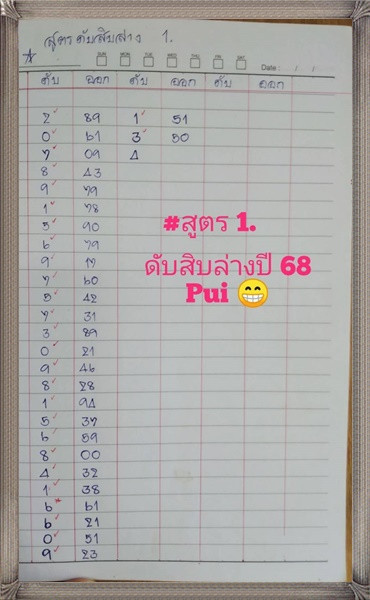 สูตรดับสิบล่าง 1.
SUN MON TUE WED THU FRI SAT
Date : / /
ดับ ออก ดับ ออก ดับ ออก
2 ✓ 89 1 ✓ 51
0 ✓ 61 3 ✓ 50
7 ✓ 09 4
8 ✓ 43
9 ✓ 79
1 ✓ 78
5 ✓ 90
6 ✓ 79
9 ✓ 17
7 ✓ 60
5 ✓ 42
7 ✓ 31
3 ✓ 89
0 ✓ 21
9 ✓ 46
8 ✓ 28
1 ✓ 94
5 ✓ 37
6 ✓ 59
8 ✓ 00
4 ✓ 32
1 ✓ 38
6 * 61
6 ✓ 21
0 ✓ 51
9 ✓ 23
#สูตร 1.
ดับสิบล่างปี 68
Pui 😁